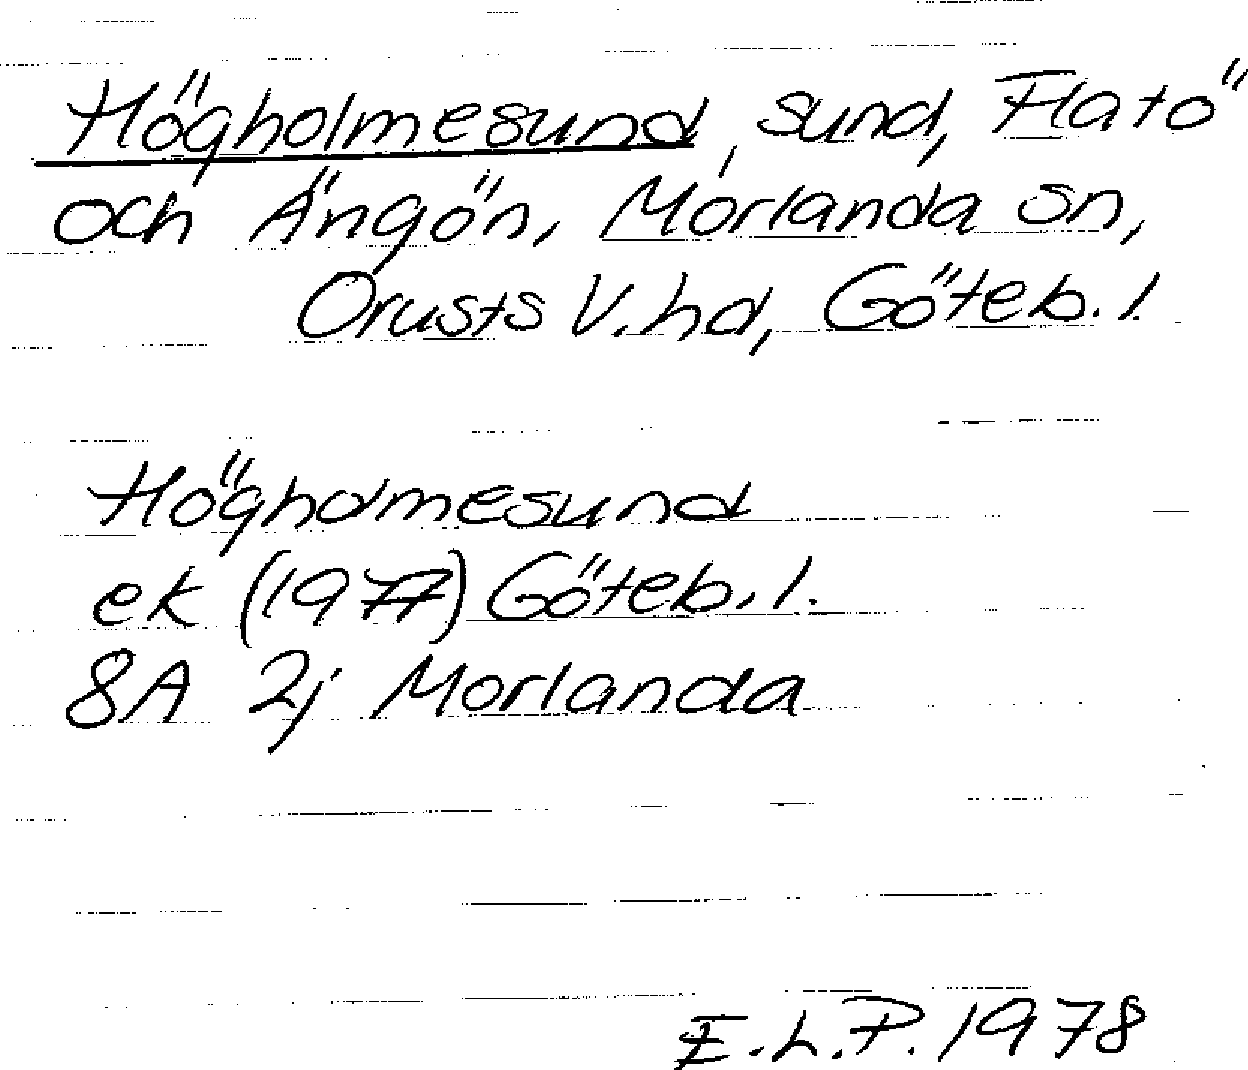 Högholmesund, sund, Flatö
och Ängön, Morlanda sn,
Orusts V. hd, Göteb. l.
Högholmesund
ek (1977) Göteb. l.
8A 2j Morlanda
E.L.P. 1978